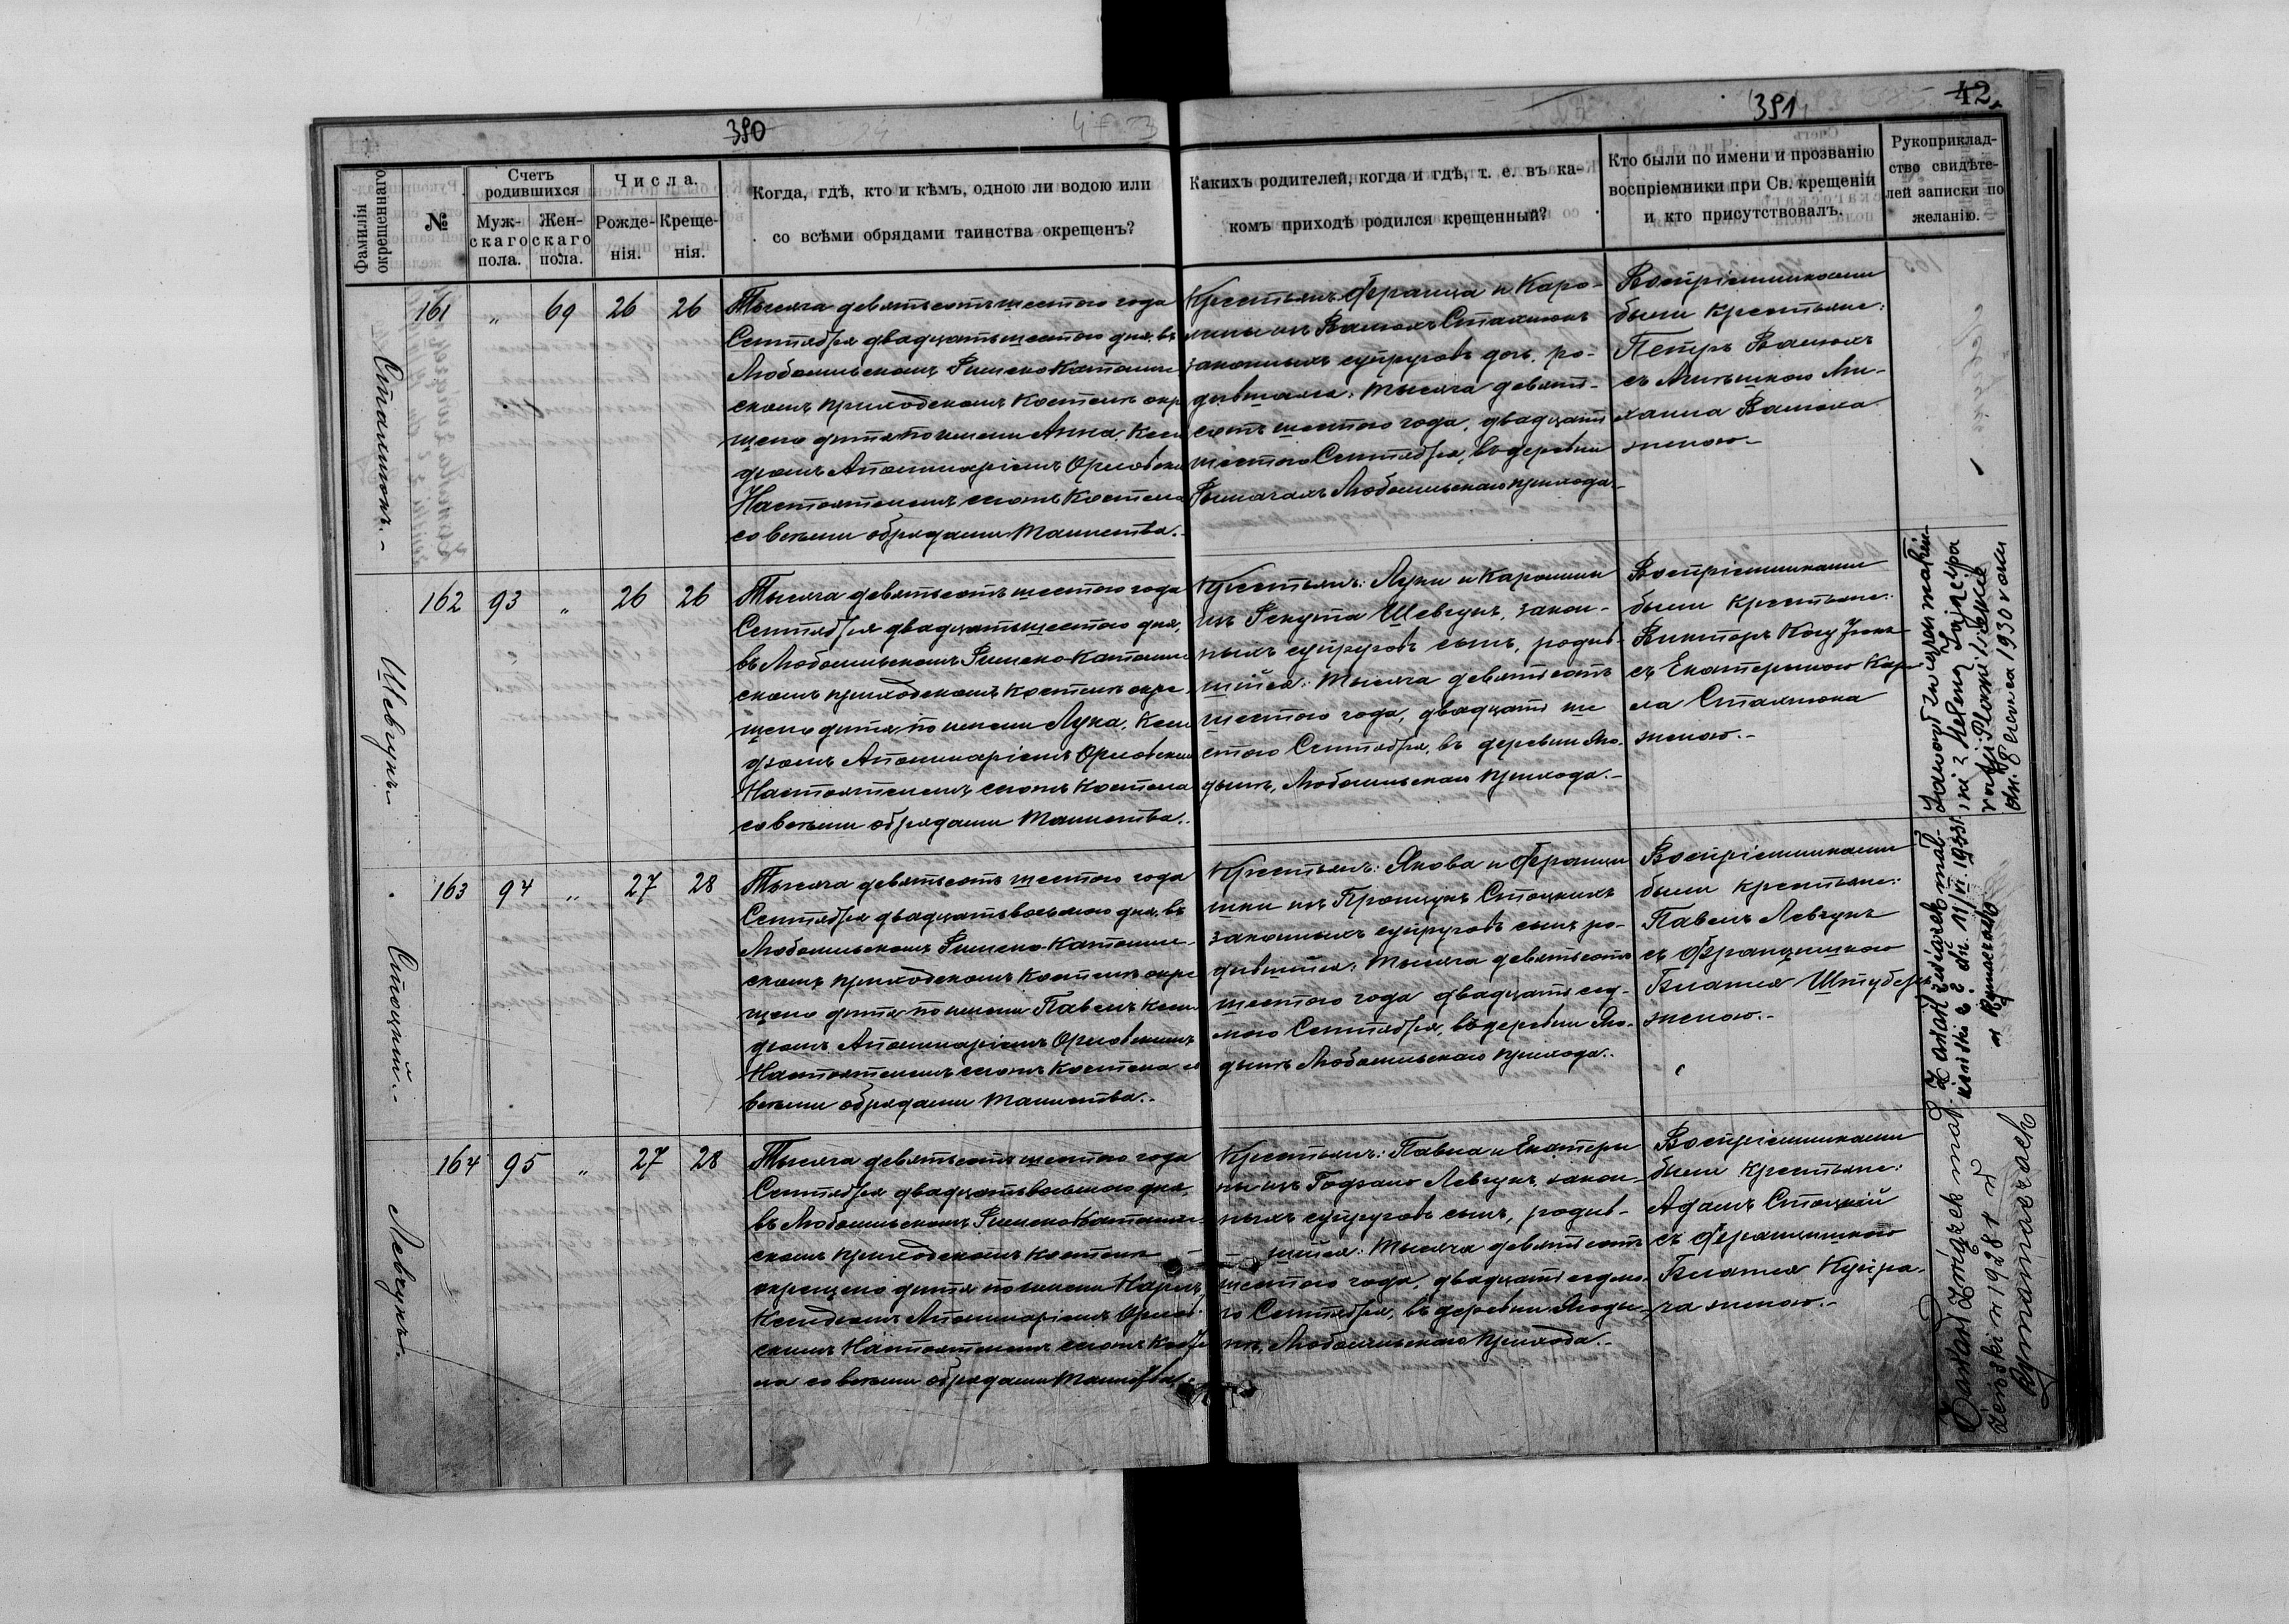 390
Фамилія окрещеннаго.
№
Счетъ родившихся
Муж-
скаго
пола.
Жен-
скаго
пола.
Числа.
Рожде-
нія.
Креще-
нія.
Когда, гдѣ, кто и кѣмъ, одною ли водою или
со всѣми обрядами таинства окрещенъ?
391
42
Какихъ родителей, когда и гдѣ, т. е. въ ка-
комъ приходѣ родился крещенный?
Кто были по имени и прозванію
воспріемники при Св. крещеніи
и кто присутствовалъ.
Рукоприклад-
ство свидѣте-
лей записки по
желанію.
Стахнюкъ.
161 " 69 26 26
Тысяча девятьсотъ шестого года
Сентября двадцать шестого дня, въ
Любомльскомъ Римско Католиче
скомъ приходскомъ костелѣ окре
щено дитя по имени Анна, Ксен
дзомъ Аполинаріемъ Орловски
Настоятелемъ сегожъ Костела
со всѣми обрядами Таинства.
Крестьянъ: Франца и Каро-
лины изъ Ванюкъ Стахнюкъ
законныхъ супруговъ дочь, ро-
дившаяся: тысяча девять-
сотъ шестого года, двадцать
шестого Сентября, въ деревни
Рымачахъ Любомльскаго прихода.
Воспріемниками
были крестьяне:
Петръ Ванюкъ
съ Ми-
хаила Ванюка
женою.
Шевчукъ
162 93 " 26 26
Тысяча девятьсотъ шестого года
Сентября двадцать шестого дня,
въ Любомльскомъ Римско-Католиче
скомъ приходскомъ костелѣ окре-
щено дитя по имени Лука, Ксен
дзомъ Аполинаріемъ Орловским
Настоятелемъ сегожъ Костела
со всѣми обрядами Таинства.
Крестьянъ: Луки и Каролины
изъ Шевчукъ, закон-
ныхъ супруговъ сынъ, родив-
шійся: тысяча девятьсотъ
шестого года, двадцать ше
стого Сентября, въ деревни Яго-
дынѣ, Любомльскаго прихода.
Воспріемниками
были крестьяне:
Викторъ
съ Екатериною Кар
ла Стахнюка
женою.
Zawarł związek małżeń-
ski z Heleną
parafji
dn. 1930 roku
Стоцкій.
163 94 " 27 28
Тысяча девятьсотъ шестого года
Сентября двадцать восьмого дня, въ
Любомльскомъ Римско-Католиче-
скомъ приходскомъ костелѣ окре
щено дитя по имени Павелъ Ксен
дзомъ Аполинаріемъ Орловскимъ
Настоятелемъ сегожъ Костела со
всѣми обрядами Таинства.
Крестьянъ: Якова и Францы
шки изъ Стоцкихъ
законныхъ супруговъ сынъ ро-
дившійся: тысяча девятьсотъ
шестого года двадцать сед-
мого Сентября, въ деревни Яго-
дынѣ Любомльскаго прихода.
Воспріемниками
были крестьяне:
Павелъ Левчукъ
съ Францишкою
Игнатія
женою.
Zawarł związek mał-
żeński dn. 11/VI. 1933 r.
w Rymaczach
Левчукъ.
164 95 " 27 28
Тысяча девятьсотъ шестого года
Сентября двадцать восьмого дня,
въ Любомльскомъ Римско Католиче-
скомъ приходскомъ костелѣ
окрещено дитя по имени Кароль
Ксендзомъ Аполинаріемъ Орлов-
скимъ Настоятелемъ сегожъ Косте
ла со всѣми обрядами Таинства.
Крестьянъ: Павла и Екатери
ны изъ Левчукъ, закон-
ныхъ супруговъ сынъ, родив-
шійся: тысяча девятьсотъ
шестого года, двадцать седмо-
го Сентября, въ деревни Ягоды-
нѣ, Любомльскаго прихода.
Воспріемниками
были крестьяне:
Адамъ Стоцкій
съ Францишкою
Игнатія
женою.
Zawarł związek mał-
żeński w 1928 r. w
Rymaczach